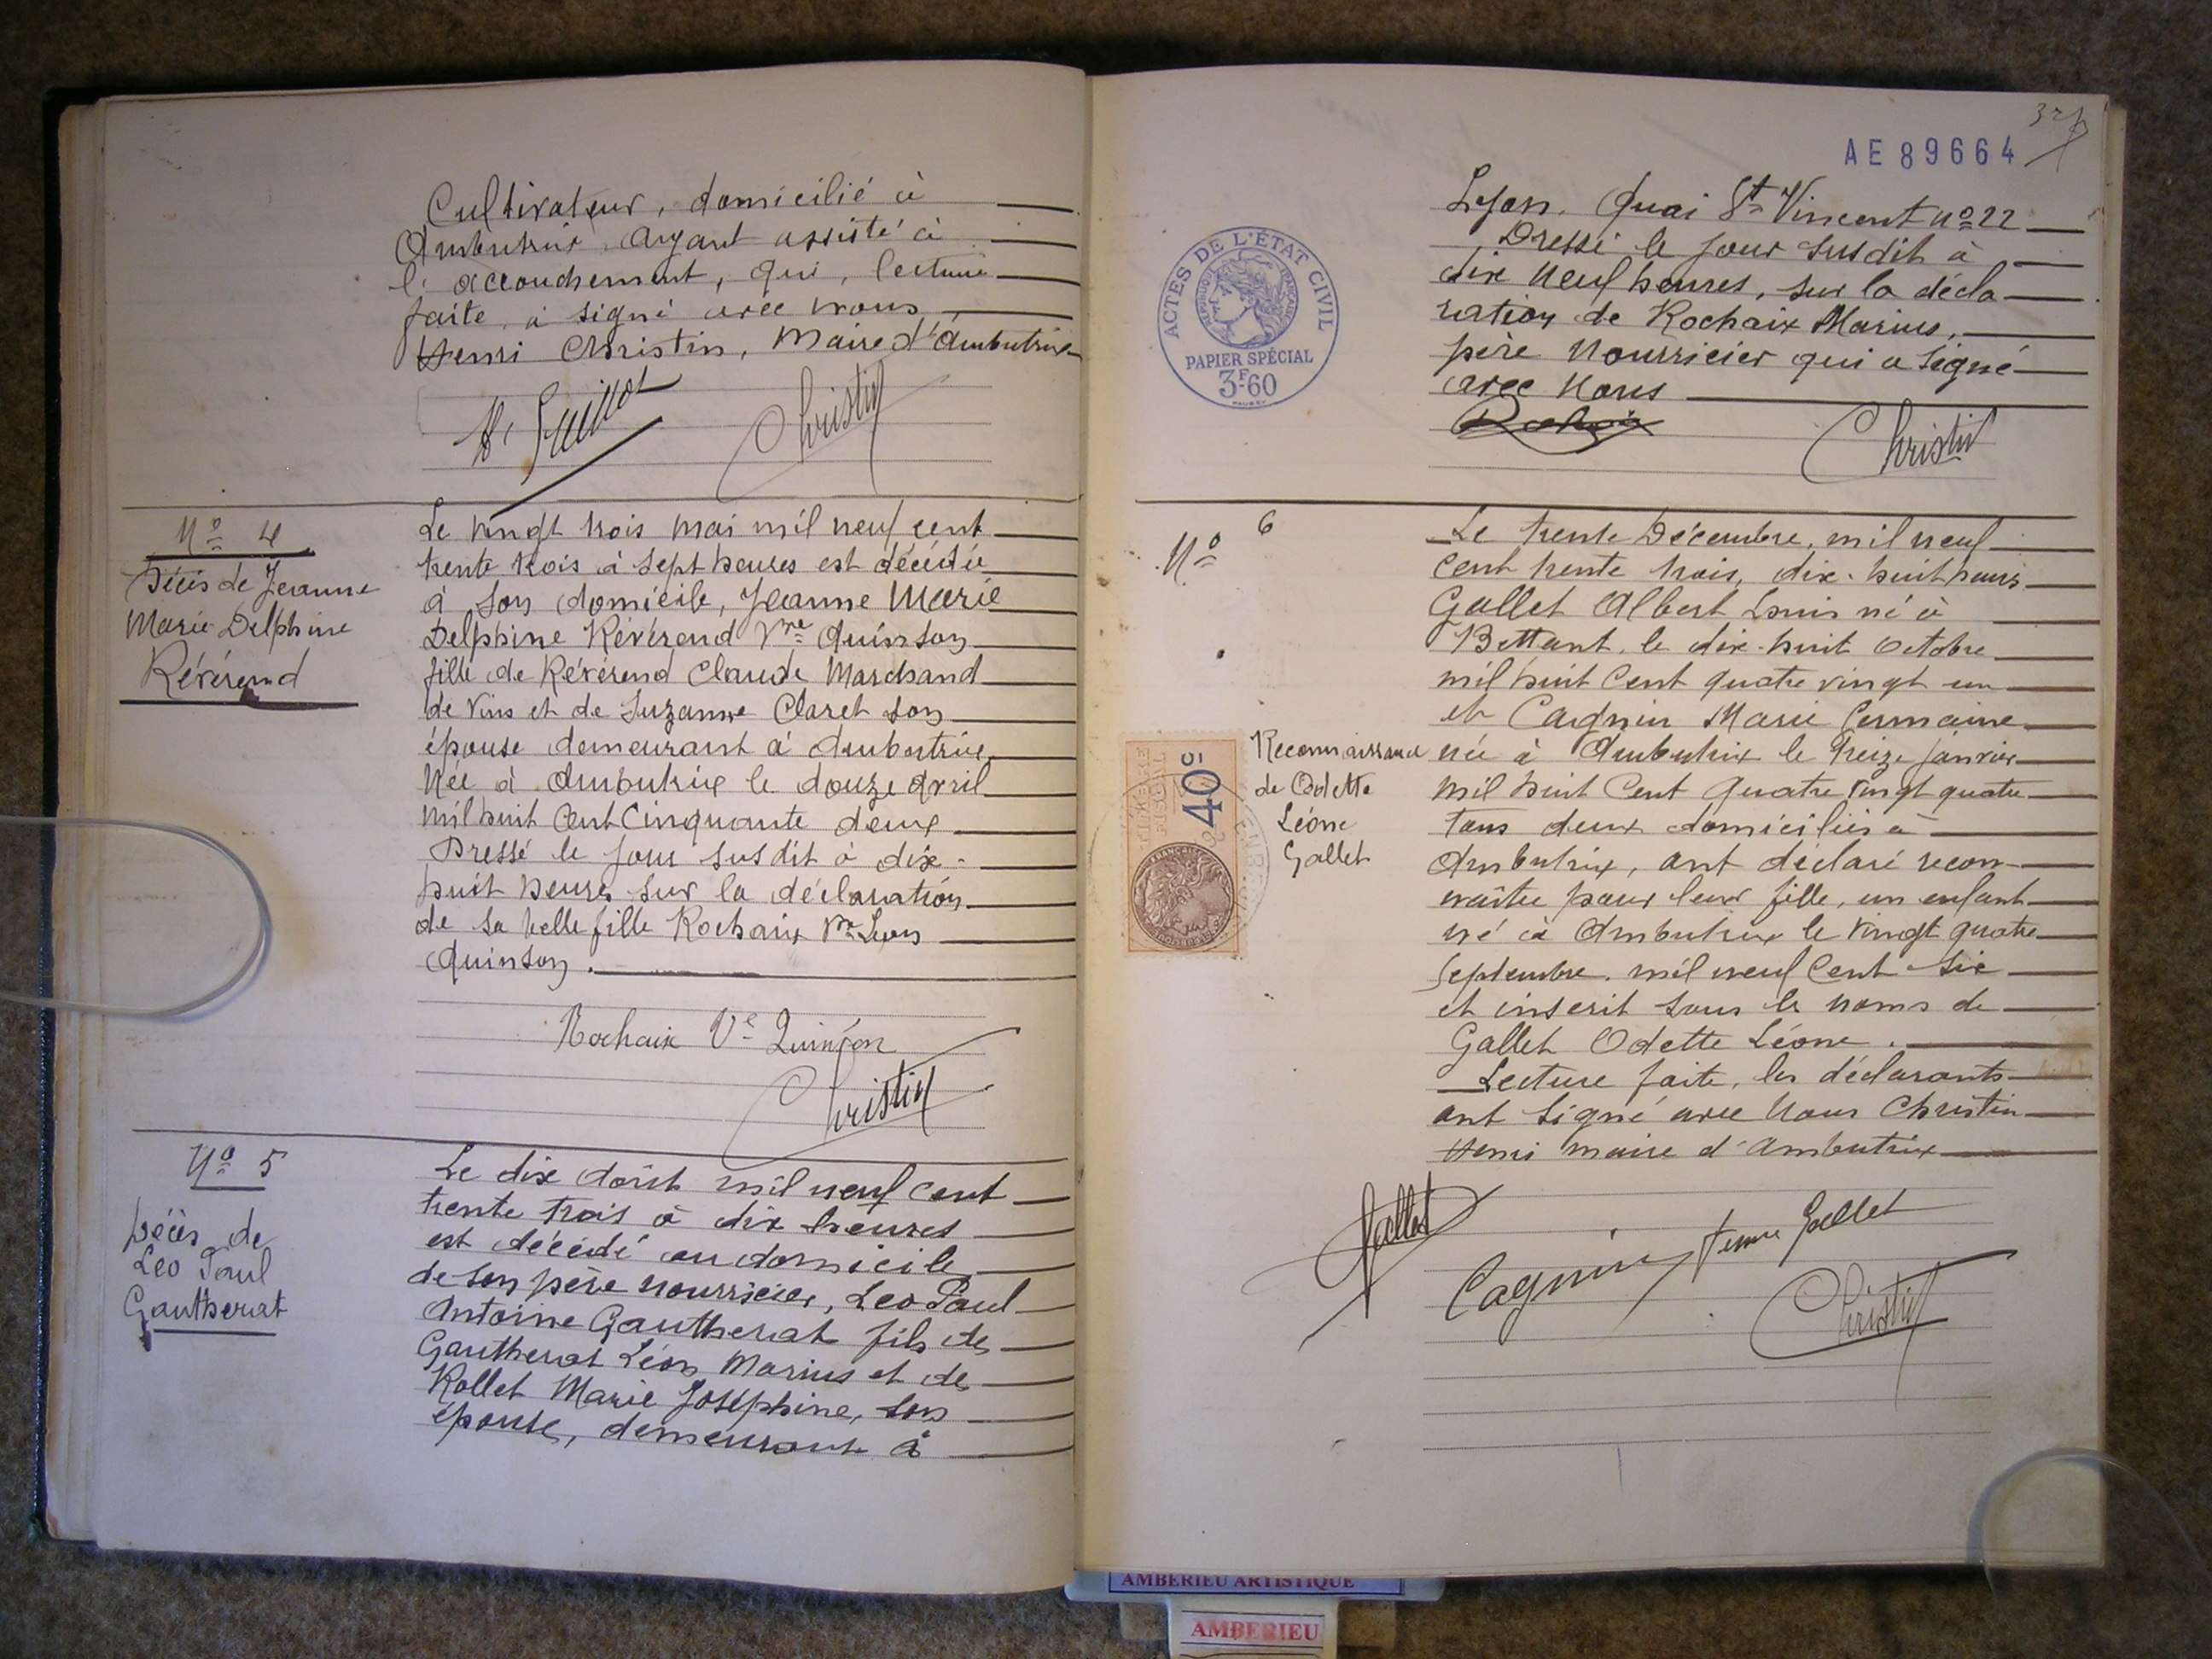 Cultivateur, domicilié à
Ambutrix, ayant assisté à
l'accouchement, qui, lecture
faite, a signé avec nous
Henri Christin, Maire d'Ambutrix
Christin
N° 4
Décès de Jeanne
Marie Delphine
Révérend
Le vingt trois mai mil neuf cent
trente trois à sept heures est décédée
à son domicile, Jeanne Marie
Delphine Révérend Vve Quinson
fille de Révérend Claude Marchand
de vins et de Suzanne Claret son
épouse demeurant à Ambutrix,
Née à Ambutrix le douze avril
mil huit cent cinquante deux
Dressé le jour susdit à dix-
huit heures sur la déclaration
de sa belle fille Rochaix Vve Léon
Quinson.
Rochaix Ve Quinson
Christin
N° 5
Décès de
Leo Paul
Gautherat
Le dix Août mil neuf cent
trente trois à dix heures
est décédé au domicile
de son père nourricier, Leo Paul
Antoine Gautherat fils de
Gautherat Léon Marius et de
Rollet Marie Joséphine, son
épouse, demeurant à
AE 89664
ACTES DE L'ÉTAT CIVIL
PAPIER SPÉCIAL
3F.60
Lyon, Quai St Vincent n° 22
Dressé le jour susdit à
dix neuf heures, sur la décla
ration de Rochaix Marius,
père nourricier qui a signé
avec nous
Christin
N° 6
Reconnaissance
de Odette
Léone
Gallet
40c
Le trente Décembre, mil neuf
cent trente trois, dix-huit heures
Gallet Albert Louis né à
Bettant, le dix-huit octobre
mil huit cent quatre vingt un
et Cagnin Marie Germaine
née à Ambutrix le treize janvier
mil huit cent quatre vingt quatre
tous deux domiciliés à
Ambutrix, ont déclaré recon-
naître pour leur fille, un enfant
né à Ambutrix le vingt quatre
septembre mil neuf cent six
et inscrit sous les noms de
Gallet Odette Léone.
Lecture faite, les déclarants
ont signé avec nous Christin
Henri maire d'Ambutrix
Gallet
Cagnin femme Gallet
Christin
AMBERIEU ARTISTIQUE
AMBERIEU